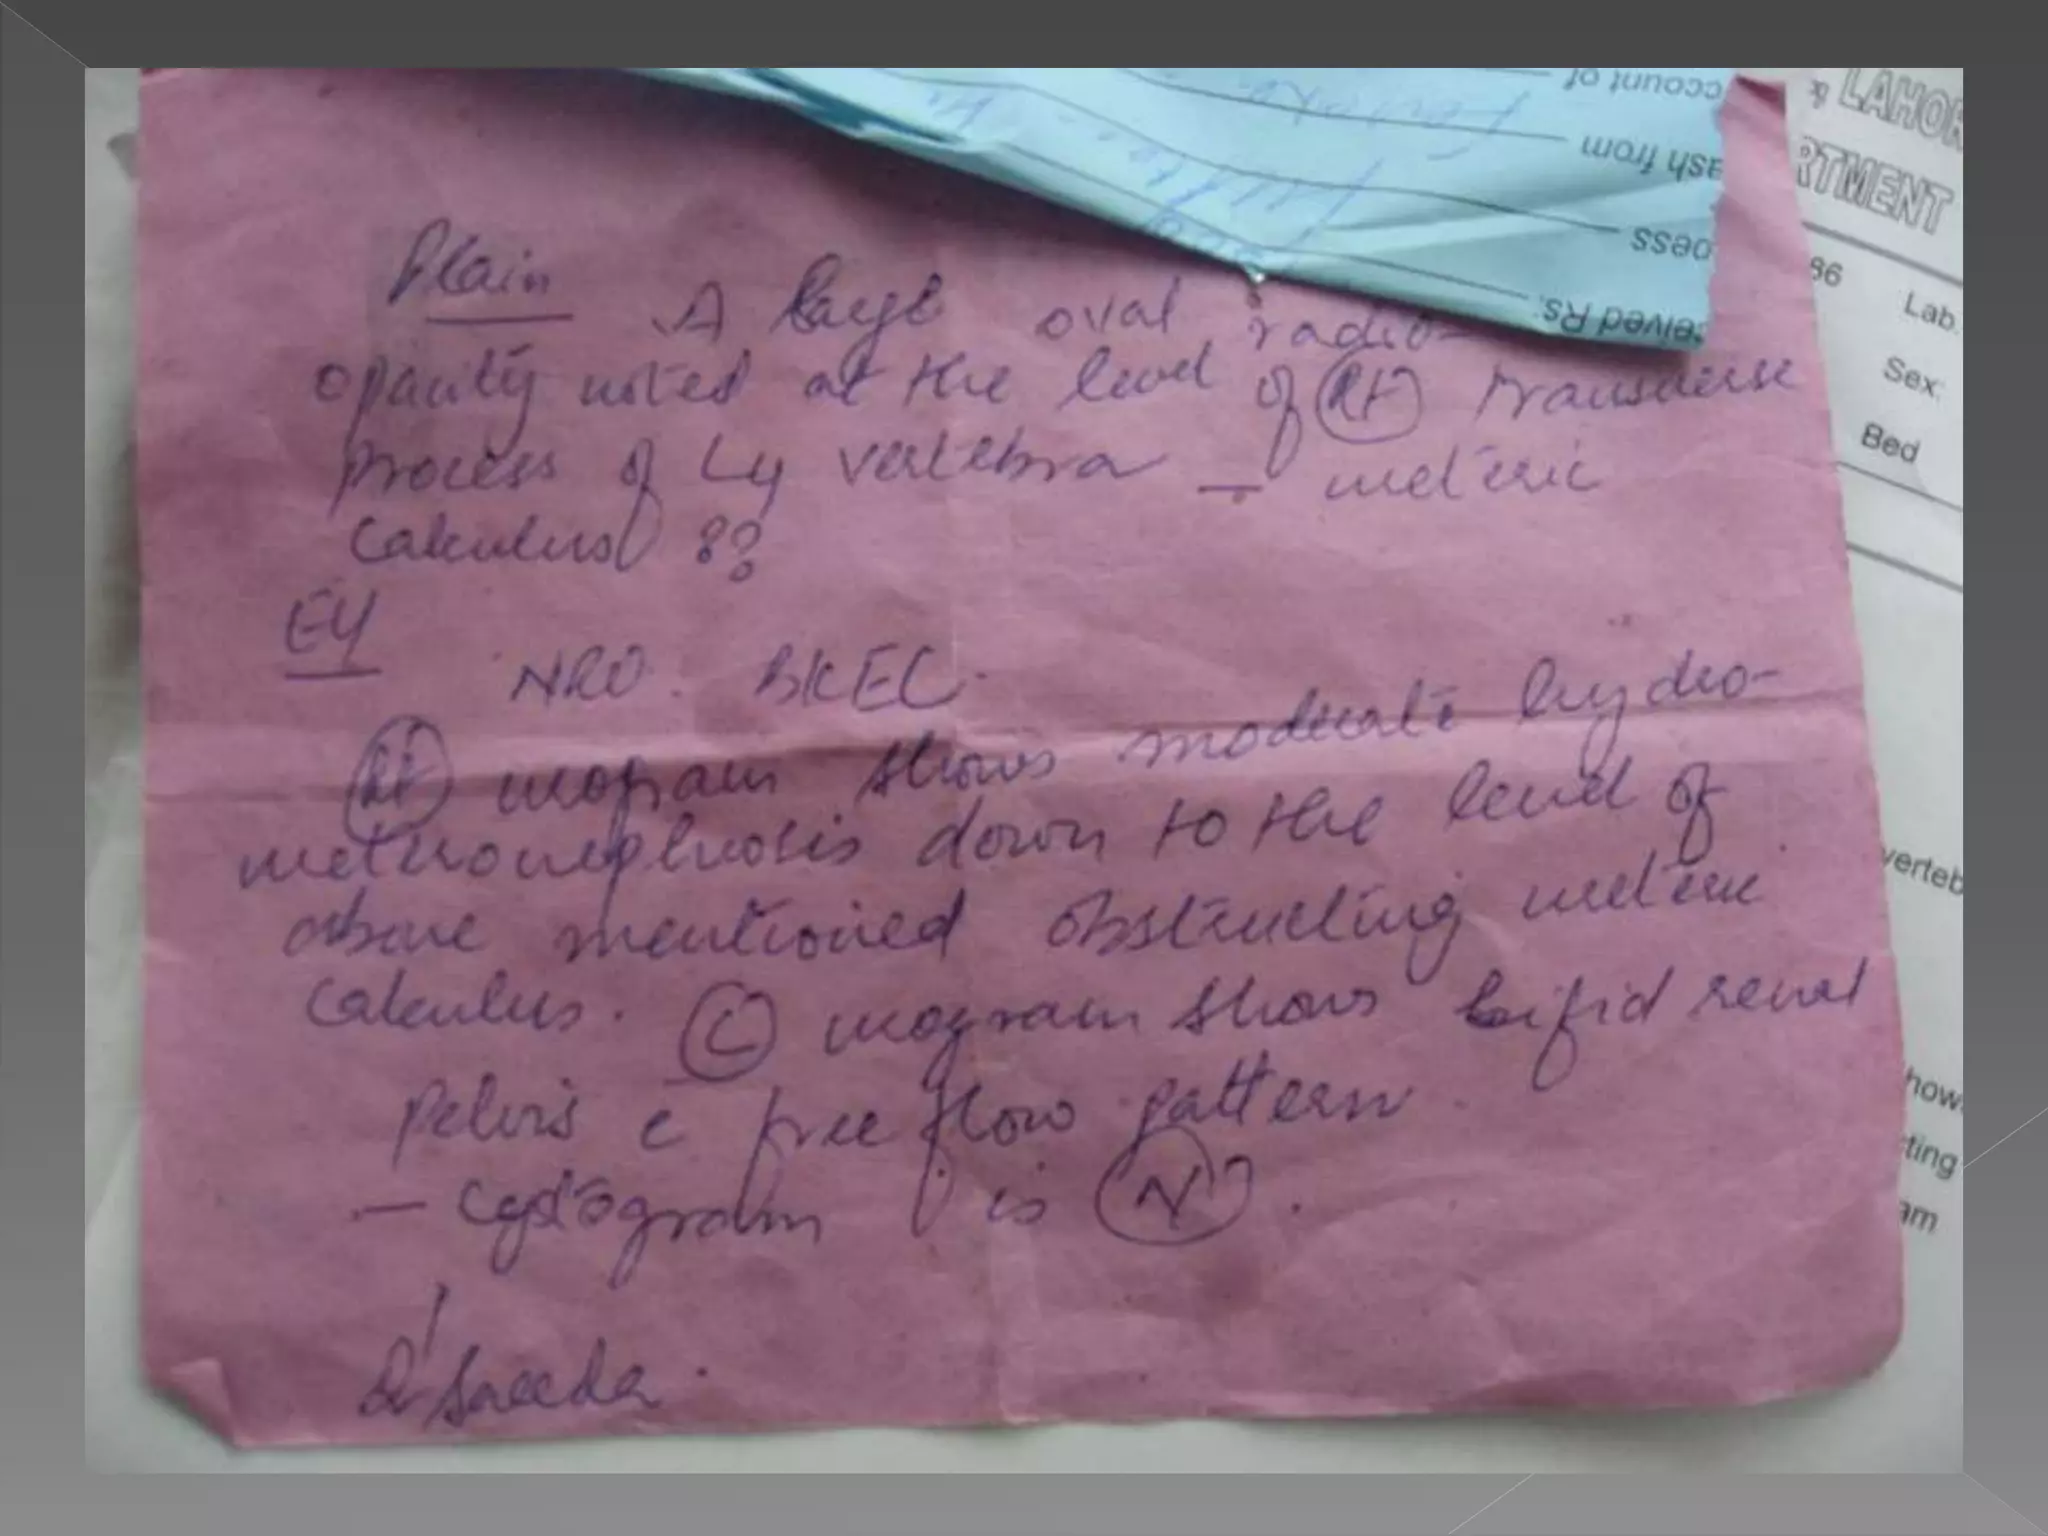 Plain
A large oval radio-
opacity noted at the level of Rt transverse
process of L4 vertebra – ureteric
calculus ??
EU
NRO. BKEC.
Rt urogram shows moderate hydro-
uretronephrosis down to the level of
above mentioned obstructing ureteric
calculus. L urogram shows bifid renal
pelvis c free flow pattern.
– cystogram is N.
Dr Saeeda.
ccount of
ash from
oess
eived Rs.
& LAHOR
RTMENT
86 Lab.
Sex:
Bed
verteb
how
ting
am